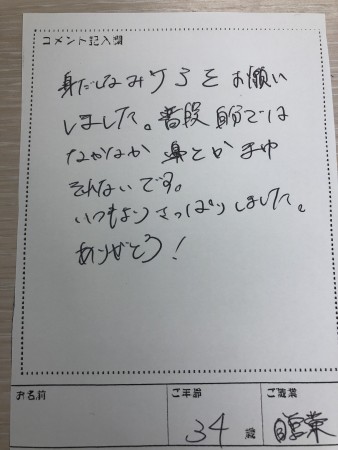 コメント記入欄
身だしなみケアをお願い
しました。普段自分では
なかなか鼻とかまゆ
それないです。
いつもよりさっぱりしました。
ありがとう!
お名前
ご年齢
ご職業
34歳
自営業